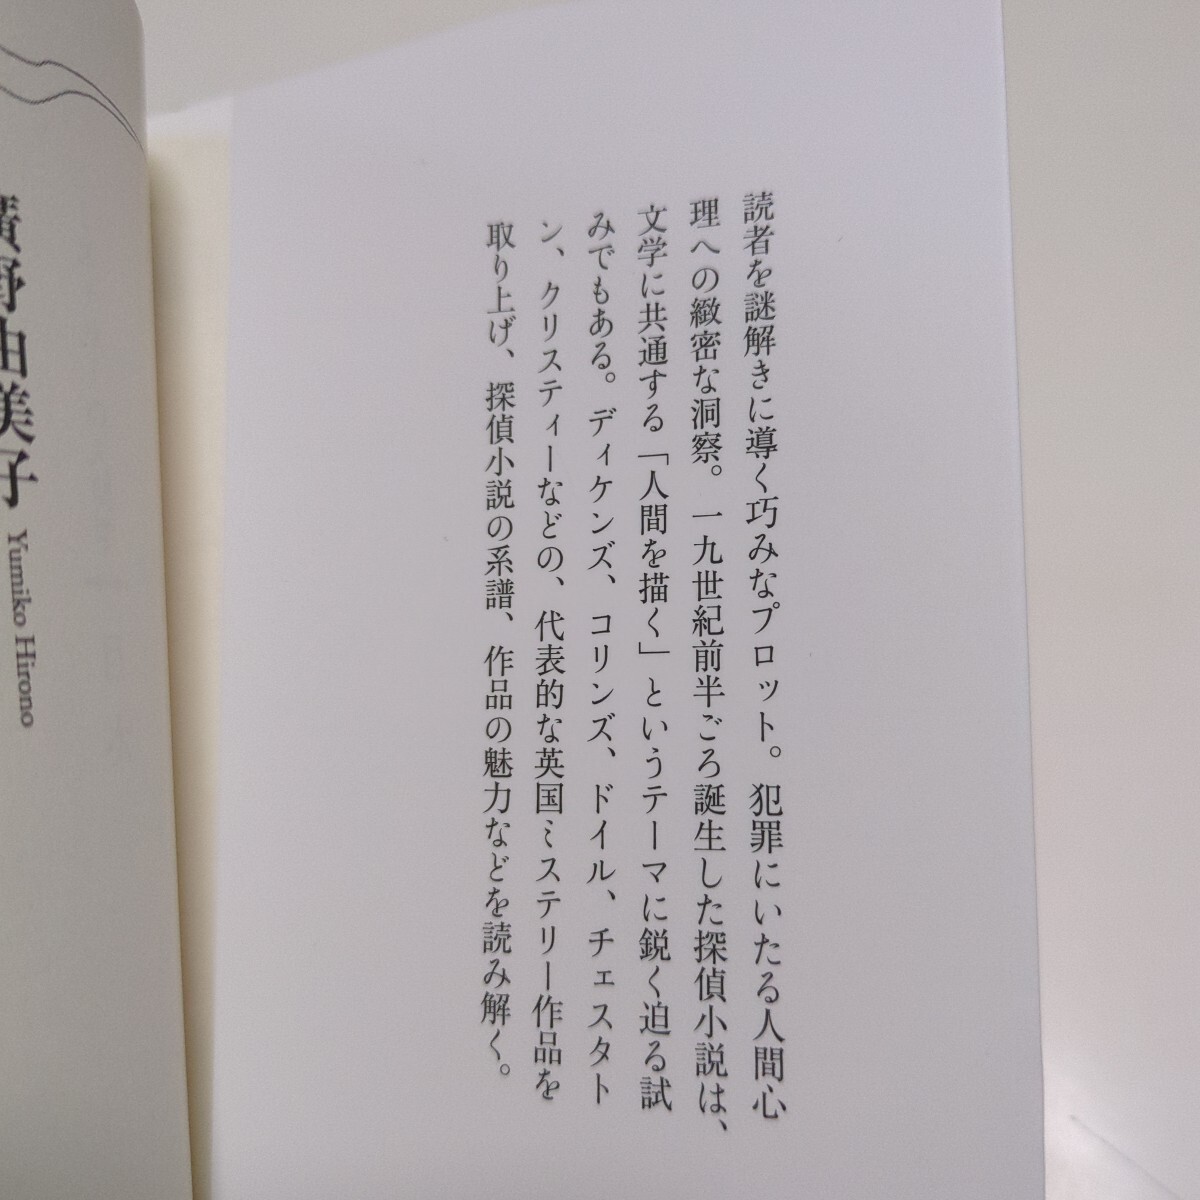 読者を謎解きに導く巧みなプロット。犯罪にいたる人間心
理への緻密な洞察。一九世紀前半ごろ誕生した探偵小説は、
文学に共通する「人間を描く」というテーマに鋭く迫る試
みでもある。ディケンズ、コリンズ、ドイル、チェスタト
ン、クリスティーなどの、代表的な英国ミステリー作品を
取り上げ、探偵小説の系譜、作品の魅力などを読み解く。
廣野由美子 Yumiko Hirono